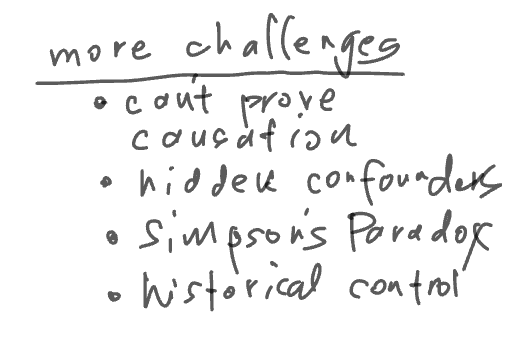 more challenges
• can't prove
causation
• hidden confounders
• Simpson's Paradox
• historical control